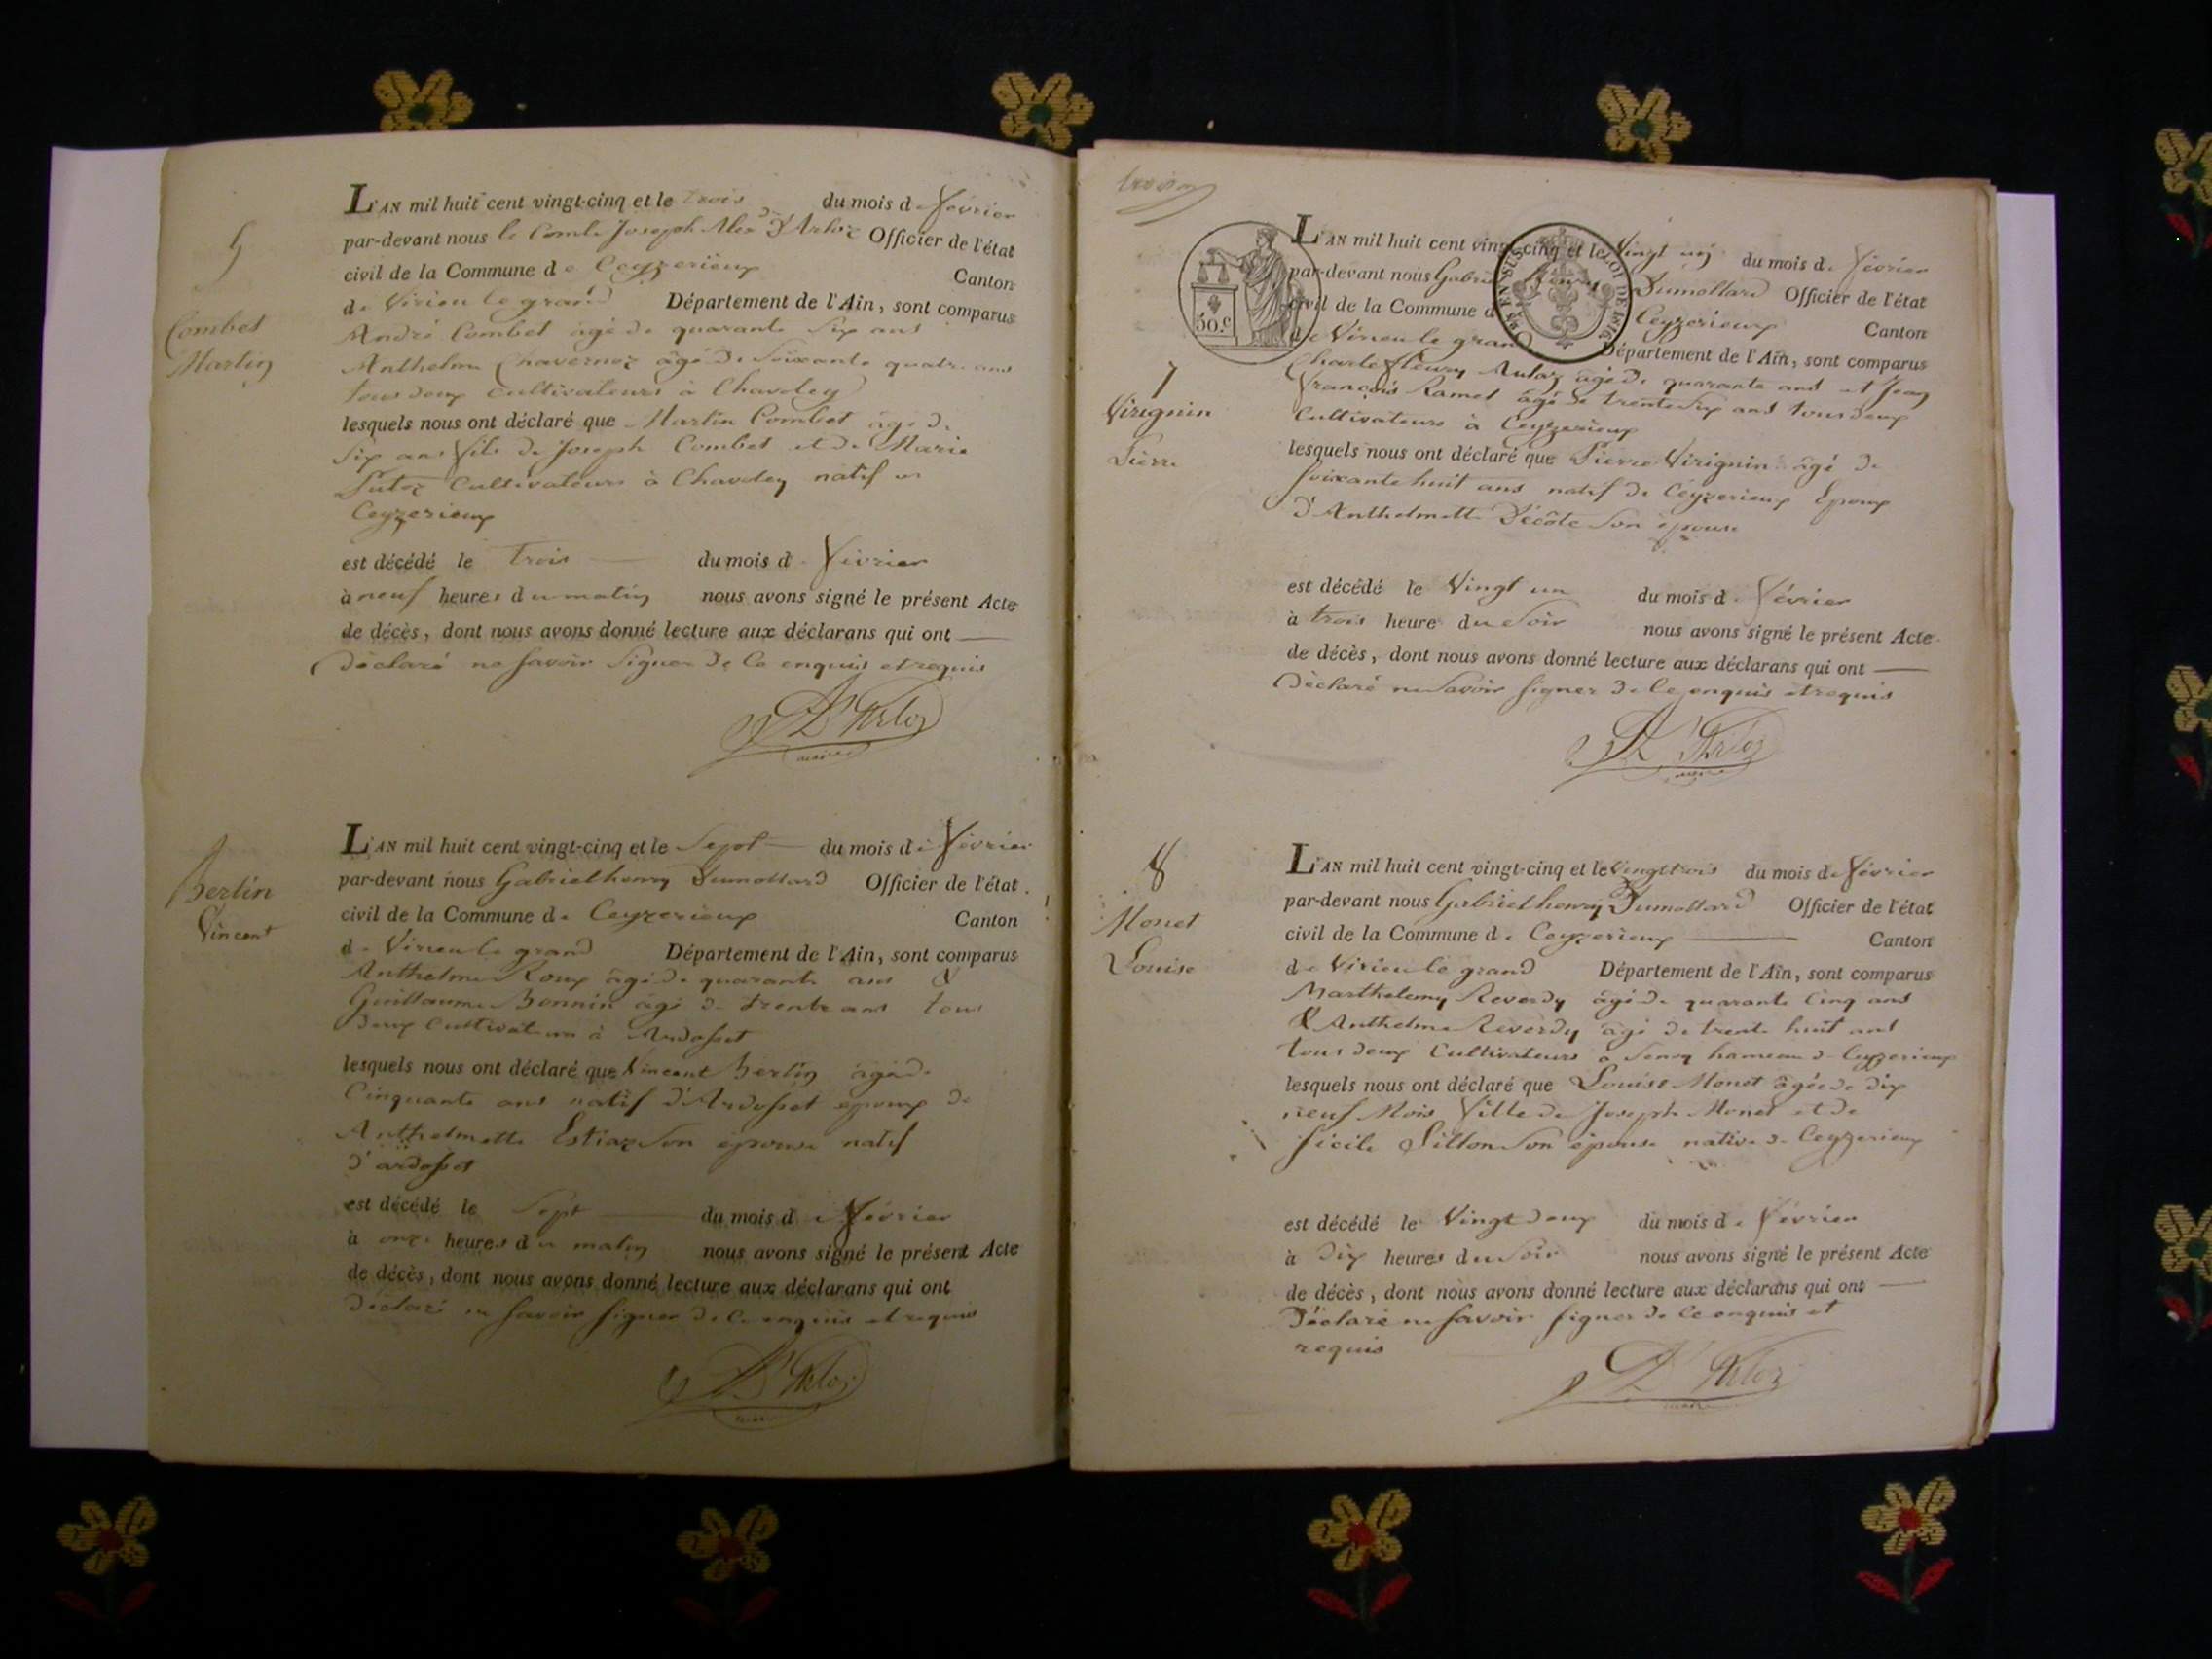 5
Combet
Martin
L'AN mil huit cent vingt-cinq et le trois du mois de février
par-devant nous le Comte Joseph Alex D'Arloz Officier de l'état
civil de la Commune de Ceyzerieux Canton
de Virieu le grand Département de l'Ain, sont comparus
André Combet âgé de quarante six ans
Anthelme Chavernoz âgé de soixante quatre ans
tous deux cultivateurs à Chavoley
lesquels nous ont déclaré que Martin Combet âgé de
six ans fils de Joseph Combet et de Marie
cultivateurs à Chavoley natif
Ceyzerieux
est décédé le trois du mois de février
à neuf heures du matin nous avons signé le présent Acte
de décès, dont nous avons donné lecture aux déclarans qui ont
déclaré ne savoir signer de ce enquis et requis
D'Arloz
maire
Bertin
Vincent
L'AN mil huit cent vingt-cinq et le Sept du mois de février
par-devant nous Gabriel henry Dumollard Officier de l'état
civil de la Commune de Ceyzerieux Canton
de Virieu le grand Département de l'Ain, sont comparus
Anthelme Roux âgé de quarante ans &
Guillaume Bonnin âgé de trente ans tous
deux cultivateurs à Ardosset
lesquels nous ont déclaré que Vincent Bertin âgé de
Cinquante ans natif d'Ardosset epoux de
Anthelmette Estiaz son épouse natif
d'ardosset
est décédé le Sept du mois de février
à onze heures du matin nous avons signé le présent Acte
de décès, dont nous avons donné lecture aux déclarans qui ont
déclaré ne savoir signer de ce enquis et requis
D'Arloz
maire
50 c
EN SUS LOI DE 1816
7
Virignin
Pierre
L'AN mil huit cent vingt-cinq et le Vingt un du mois de février
par-devant nous Gabriel henry Dumollard Officier de l'état
civil de la Commune de Ceyzerieux Canton
de Virieu le grand Département de l'Ain, sont comparus
Charle fleury âgé de quarante ans et Jean
François Ramel âgé de trente six ans tous deux
Cultivateurs à Ceyzerieux
lesquels nous ont déclaré que Pierre Virignin âgé de
soixante huit ans natif de Ceyzerieux Epoux
d'Anthelmette Décôte son épouse
est décédé le Vingt un du mois de février
à trois heures du soir nous avons signé le présent Acte
de décès, dont nous avons donné lecture aux déclarans qui ont
déclaré ne savoir signer de ce enquis et requis
D'Arloz
maire
8
Monet
Louise
L'AN mil huit cent vingt-cinq et le vingt trois du mois de février
par-devant nous Gabriel henry Dumollard Officier de l'état
civil de la Commune de Ceyzerieux Canton
de Virieu le grand Département de l'Ain, sont comparus
Marthelemy Reverdy âgé de quarante cinq ans
& Anthelme Reverdy âgé de trente huit ans
tous deux Cultivateurs à hameau de Ceyzerieux
lesquels nous ont déclaré que Louise Monet âgée de dix
neuf Mois fille de Joseph Monet et de
sicile Sillon son épouse native de Ceyzerieux
est décédé le Vingt deux du mois de février
à dix heures du soir nous avons signé le présent Acte
de décès, dont nous avons donné lecture aux déclarans qui ont
déclaré ne savoir signer de ce enquis et
requis
D'Arloz
maire